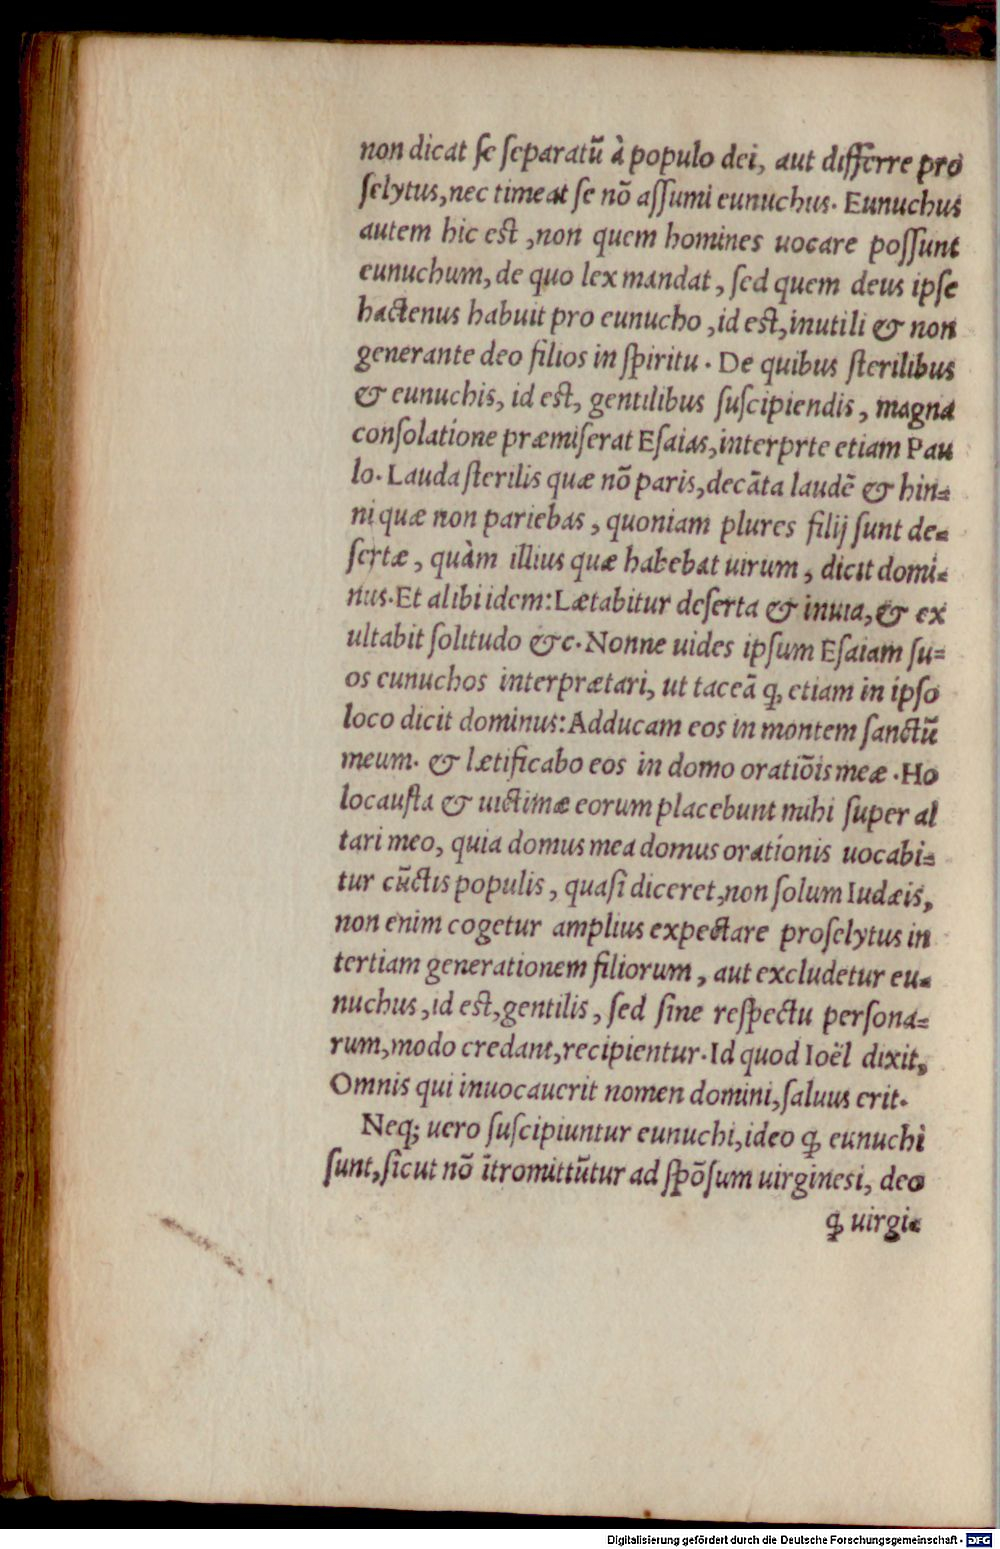 non dicat ſe ſeparatū à populo dei, aut differre pro
ſelytus, nec timeat ſe nō aſſumi eunuchus. Eunuchus
autem hic eſt, non quem homines uocare poſſunt
eunuchum, de quo lex mandat, ſed quem deus ipſe
hactenus habuit pro eunucho, id eſt, inutili & non
generante deo filios in ſpiritu. De quibus ſterilibus
& eunuchis, id eſt, gentilibus ſuſcipiendis, magna
conſolatione præmiſerat Eſaias, interprte etiam Pau
lo. Lauda ſterilis quæ nō paris, decāta laudē & hin-
ni quæ non pariebas, quoniam plures filij ſunt de-
ſertæ, quàm illius quæ habebat uirum, dicit domi-
nus. Et alibi idem: Lætabitur deſerta & inuia, & ex
ultabit ſolitudo &c. Nonne uides ipſum Eſaiam ſu-
os eunuchos interprætari, ut taceā ꝙ, etiam in ipſo
loco dicit dominus: Adducam eos in montem ſanctū
meum. & lætificabo eos in domo oratiōis meæ. Ho
locauſta & uictimæ eorum placebunt mihi ſuper al
tari meo, quia domus mea domus orationis uocabi-
tur cūctis populis, quaſi diceret, non ſolum Iudæis,
non enim cogetur amplius expectare proſelytus in
tertiam generationem filiorum, aut excludetur eu-
nuchus, id eſt, gentilis, ſed ſine reſpectu perſona-
rum, modo credant, recipientur. Id quod Ioël dixit,
Omnis qui inuocauerit nomen domini, ſaluus erit.
Neq; uero ſuſcipiuntur eunuchi, ideo ꝙ eunuchi
ſunt, ſicut nō ītromittūtur ad ſpōſum uirgines i, deo
ꝙ uirgi-
Digitalisierung gefördert durch die Deutsche Forschungsgemeinschaft - DFG